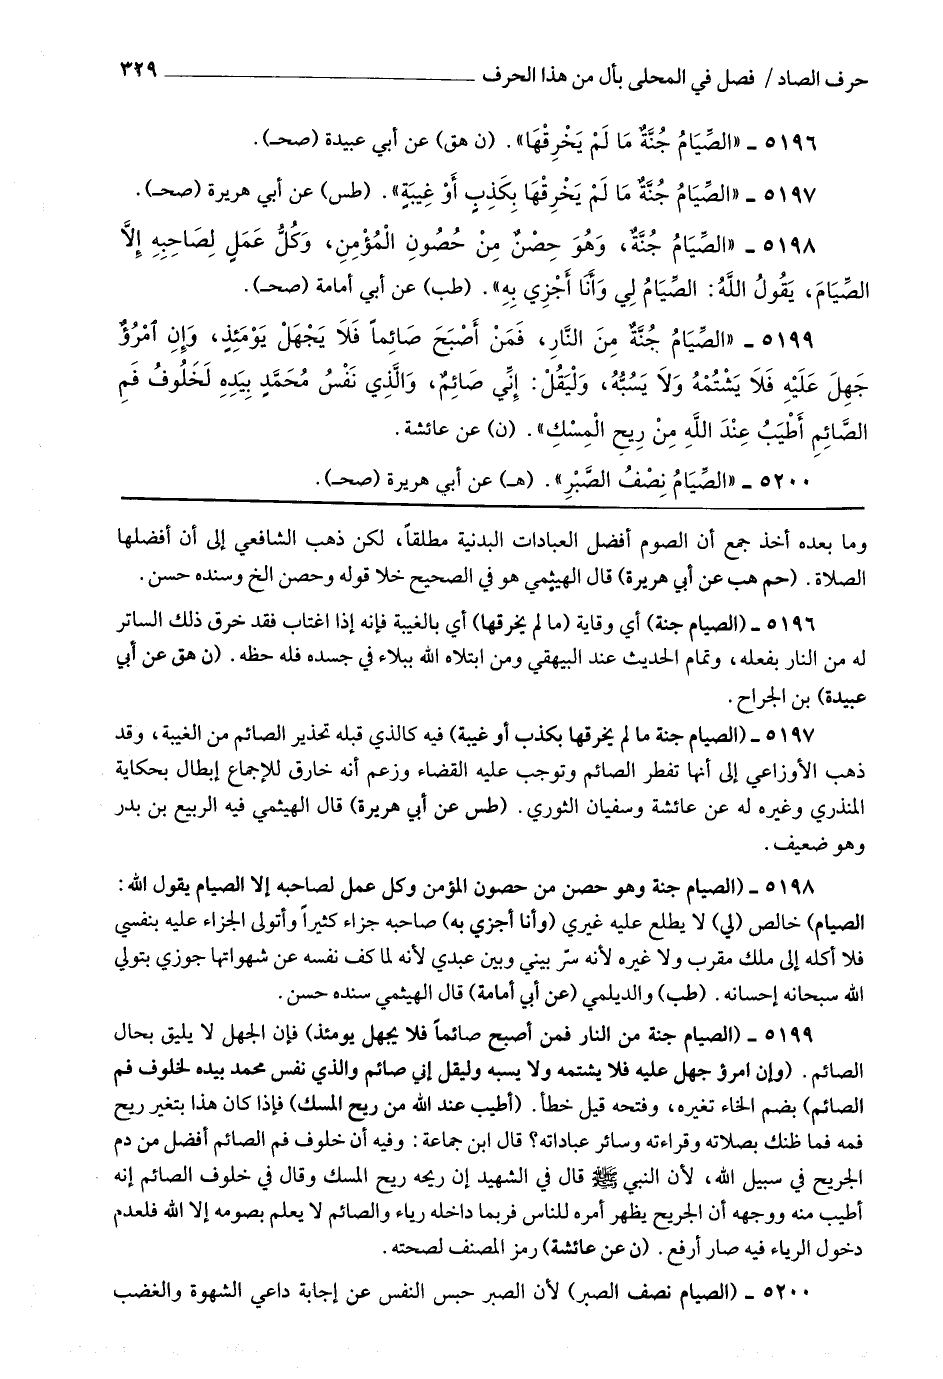 حرف الصاد / فصل في المحلى بأل من هذا الحرف ــــــــــــ ٣٢٩
٥١٩٦ ـ «الصِّيَامُ جُنَّةٌ مَا لَمْ يَخْرِقْهَا». (ن هق) عن أبي عبيدة (صحـ).
٥١٩٧ ـ «الصِّيَامُ جُنَّةٌ مَا لَمْ يَخْرِقْهَا بِكَذِبٍ أَوْ غِيبَةٍ». (طس) عن أبي هريرة (صحـ).
٥١٩٨ ـ «الصِّيَامُ جُنَّةٌ، وَهُوَ حِصْنٌ مِنْ حُصُونِ الْمُؤْمِنِ، وَكُلُّ عَمَلٍ لِصَاحِبِهِ إِلاَّ
الصِّيَامَ، يَقُولُ اللَّهُ: الصِّيَامُ لِي وَأَنَا أَجْزِي بِهِ». (طب) عن أبي أمامة (صحـ).
٥١٩٩ ـ «الصِّيَامُ جُنَّةٌ مِنَ النَّارِ، فَمَنْ أَصْبَحَ صَائِماً فَلَا يَجْهَلْ يَوْمَئِذٍ، وَإِنِ ٱمْرُؤٌ
جَهِلَ عَلَيْهِ فَلَا يَشْتُمْهُ وَلَا يَسُبُّهُ، وَلْيَقُلْ: إِنِّي صَائِمٌ، وَالَّذِي نَفْسُ مُحَمَّدٍ بِيَدِهِ لَخَلُوفُ فَمِ
الصَّائِمِ أَطْيَبُ عِنْدَ اللَّهِ مِنْ رِيحِ الْمِسْكِ». (ن) عن عائشة.
٥٢٠٠ ـ «الصِّيَامُ نِصْفُ الصَّبْرِ». (هـ) عن أبي هريرة (صحـ).
وما بعده أخذ جمع أن الصوم أفضل العبادات البدنية مطلقاً، لكن ذهب الشافعي إلى أن أفضلها
الصلاة. (حم هب عن أبي هريرة) قال الهيثمي هو في الصحيح خلا قوله وحصن الخ وسنده حسن.
٥١٩٦ ـ (الصيام جنة) أي وقاية (ما لم يخرقها) أي بالغيبة فإنه إذا اغتاب فقد خرق ذلك الساتر
له من النار بفعله، وتمام الحديث عند البيهقي ومن ابتلاه الله ببلاء في جسده فله حظه. (ن هق عن أبي
عبيدة) بن الجراح.
٥١٩٧ ـ (الصيام جنة ما لم يخرقها بكذب أو غيبة) فيه كالذي قبله تحذير الصائم من الغيبة، وقد
ذهب الأوزاعي إلى أنها تفطر الصائم وتوجب عليه القضاء وزعم أنه خارق للإجماع إبطال بحكاية
المنذري وغيره له عن عائشة وسفيان الثوري. (طس عن أبي هريرة) قال الهيثمي فيه الربيع بن بدر
وهو ضعيف.
٥١٩٨ ـ (الصيام جنة وهو حصن من حصون المؤمن وكل عمل لصاحبه إلا الصيام يقول الله:
الصيام) خالص (لي) لا يطلع عليه غيري (وأنا أجزي به) صاحبه جزاء كثيراً وأتولى الجزاء عليه بنفسي
فلا أكله إلى ملك مقرب ولا غيره لأنه سرّ بيني وبين عبدي لأنه لما كف نفسه عن شهواتها جوزي بتولي
الله سبحانه إحسانه. (طب) والديلمي (عن أبي أمامة) قال الهيثمي سنده حسن.
٥١٩٩ ـ (الصيام جنة من النار فمن أصبح صائماً فلا يجهل يومئذ) فإن الجهل لا يليق بحال
الصائم. (وإن امرؤ جهل عليه فلا يشتمه ولا يسبه وليقل إني صائم والذي نفس محمد بيده لخلوف فم
الصائم) بضم الخاء تغيره، وفتحه قيل خطأ. (أطيب عند الله من ريح المسك) فإذا كان هذا بتغير ريح
فمه فما ظنك بصلاته وقراءته وسائر عباداته؟ قال ابن جماعة: وفيه أن خلوف فم الصائم أفضل من دم
الجريح في سبيل الله، لأن النبي ﷺ قال في الشهيد إن ريحه ريح المسك وقال في خلوف الصائم إنه
أطيب منه ووجهه أن الجريح يظهر أمره للناس فربما داخله رياء والصائم لا يعلم بصومه إلا الله فلعدم
دخول الرياء فيه صار أرفع. (ن عن عائشة) رمز المصنف لصحته.
٥٢٠٠ ـ (الصيام نصف الصبر) لأن الصبر حبس النفس عن إجابة داعي الشهوة والغضب